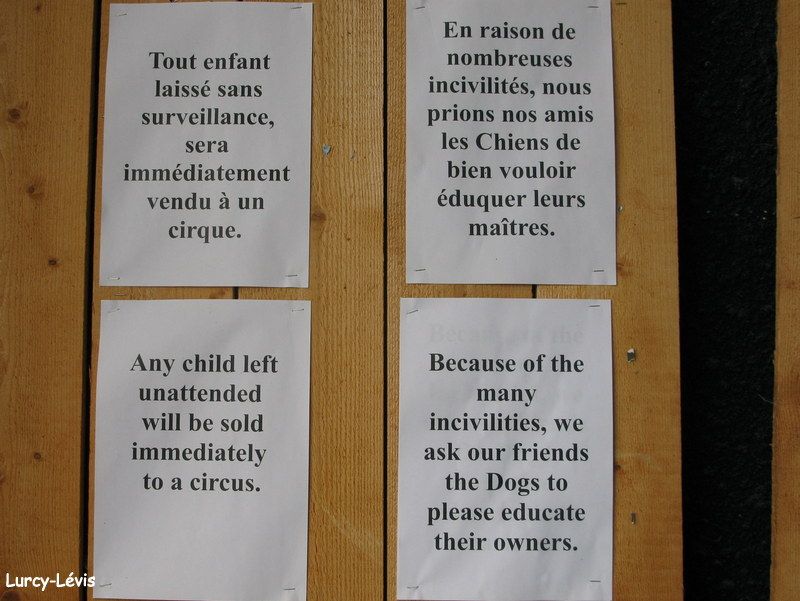 Tout enfant
laissé sans
surveillance,
sera
immédiatement
vendu à un
cirque.
En raison de
nombreuses
incivilités, nous
prions nos amis
les Chiens de
bien vouloir
éduquer leurs
maîtres.
Any child left
unattended
will be sold
immediately
to a circus.
Because of the
Because of the
many
incivilities, we
ask our friends
the Dogs to
please educate
their owners.
Lurcy-Lévis